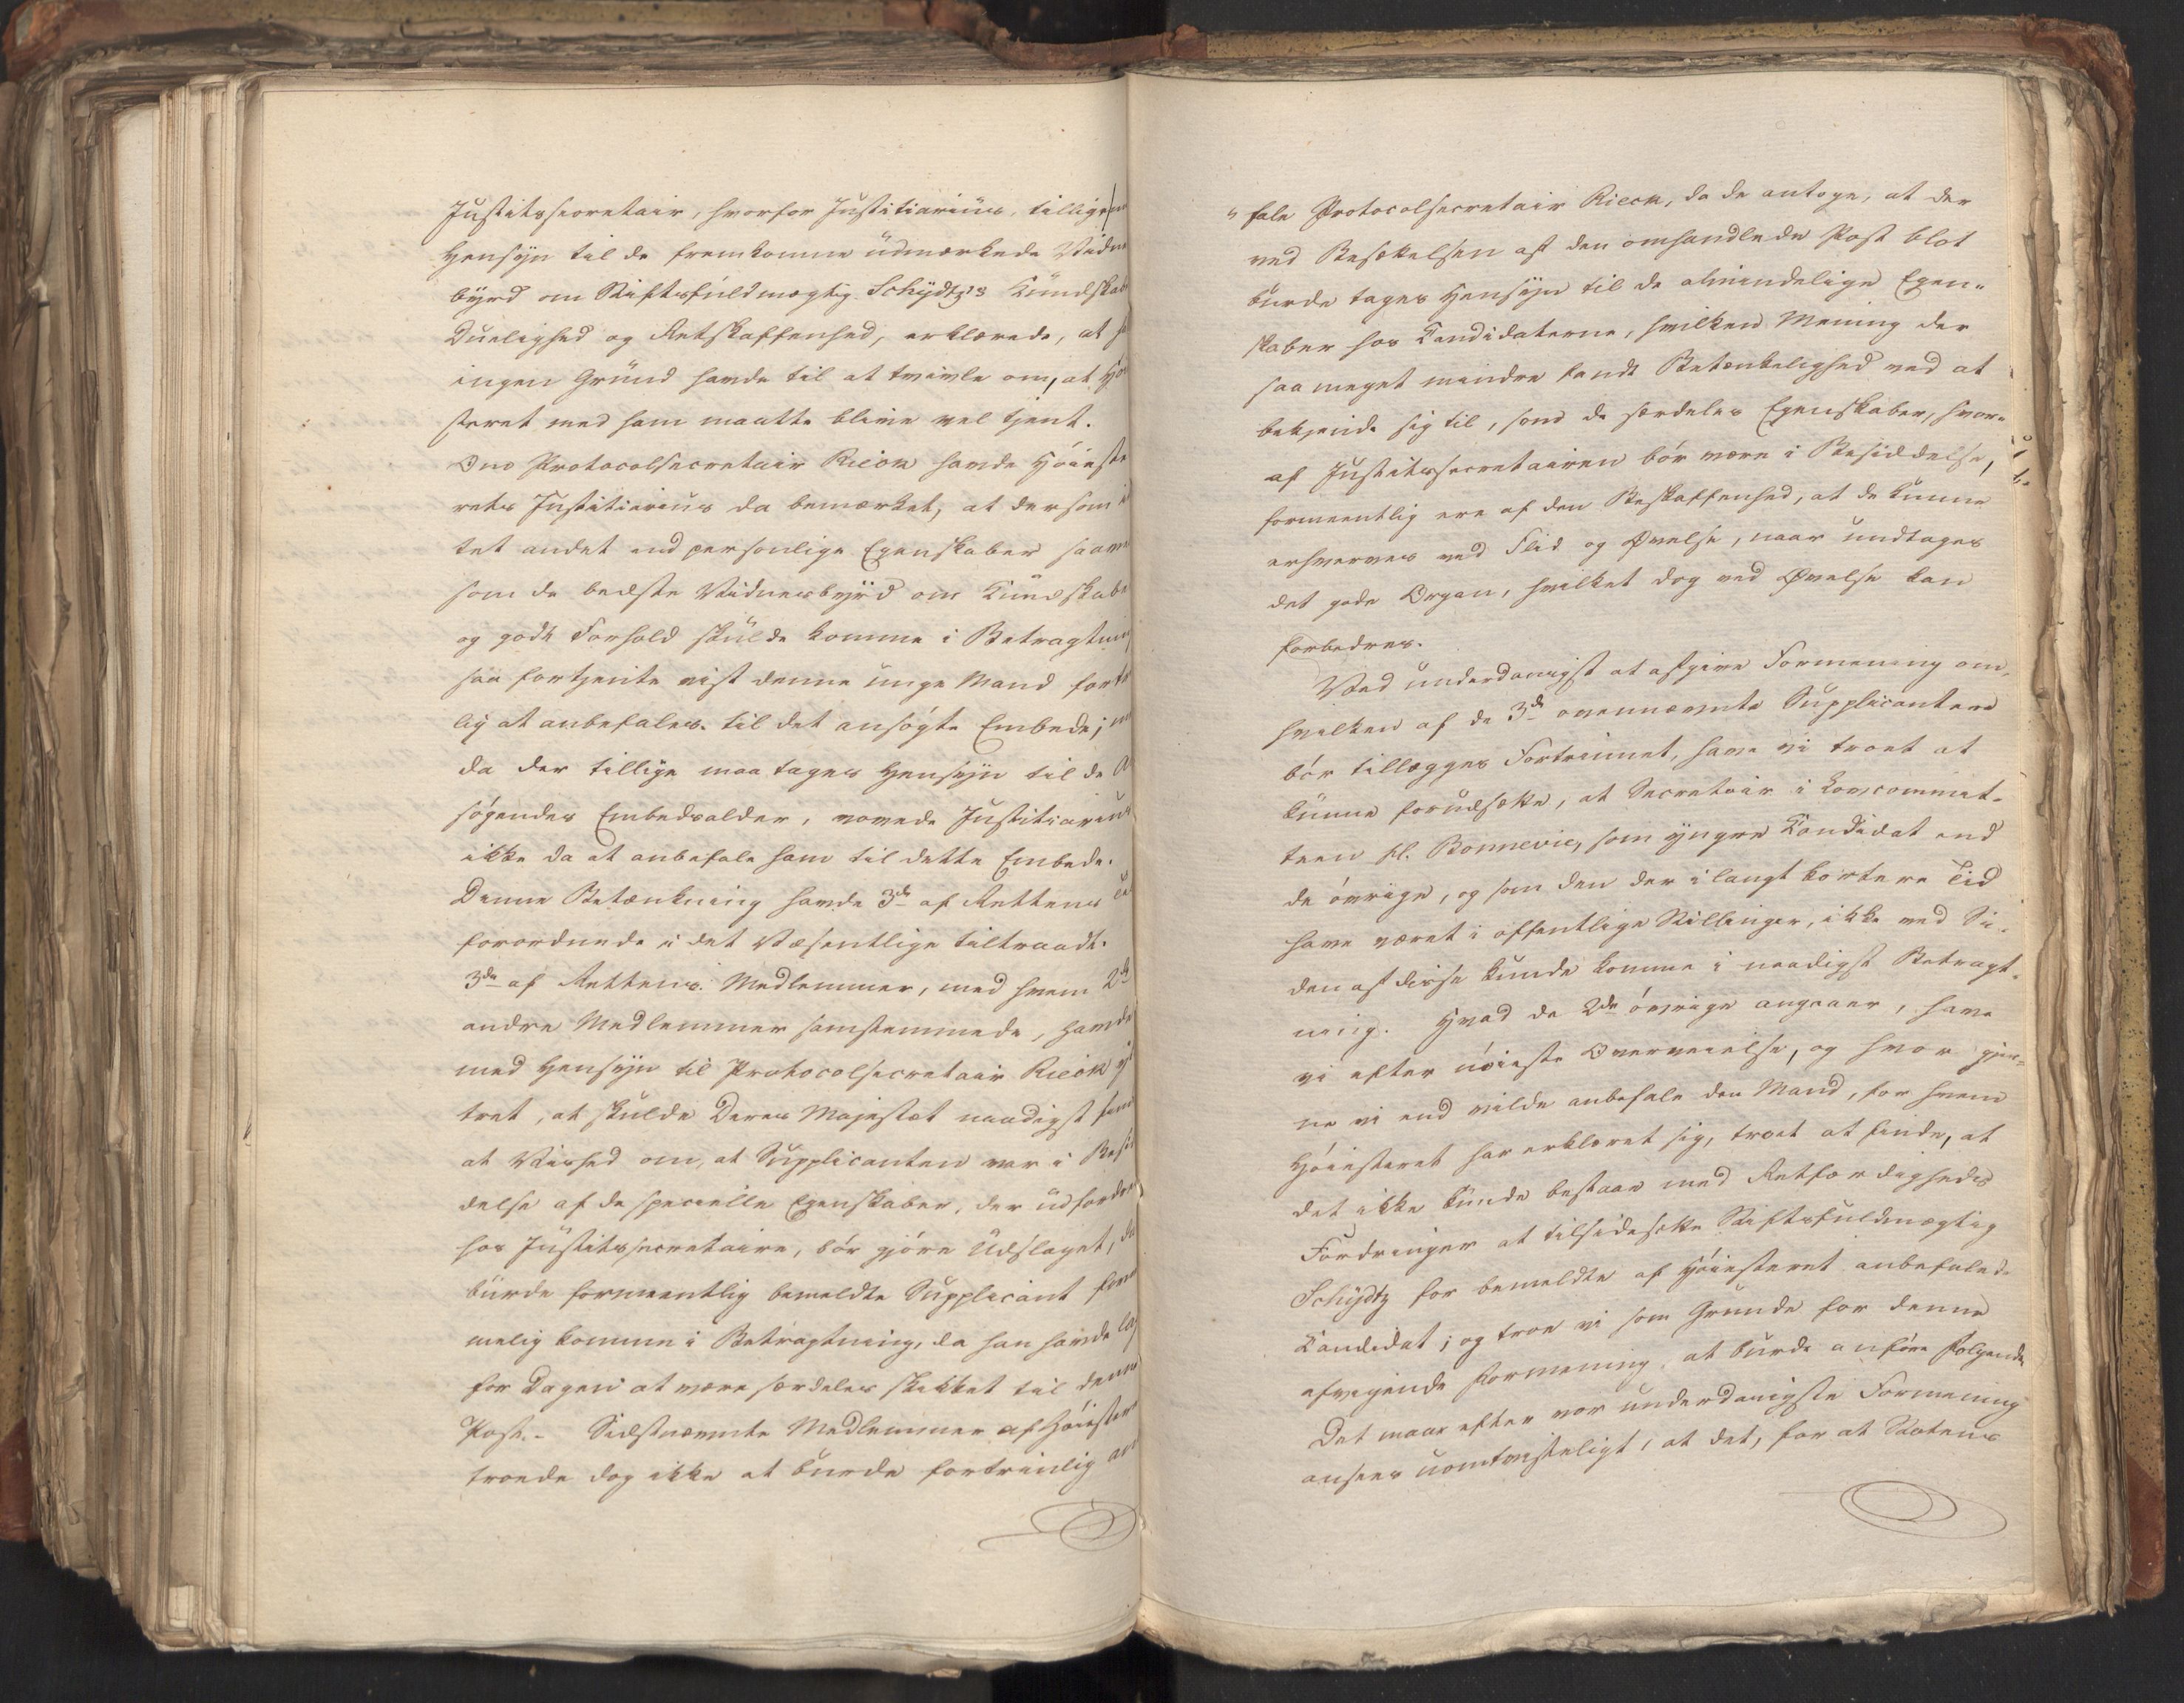 Justitssecretair, hvorfor Justitiarius, tillige
Hensyn til de fremkomne udmærkede Vidne
byrd om Stiftsfuldmægtig Schydtz's Kundskab
Duelighed og Retskaffenhed, erklærede, at h
ingen Grund havde til at tvivle om, at Hói
steret med ham maatte blive vel tjent.
Om Protocolsecretair Rieck havde Hóieste
rets Justitiarius da bemærket, at dersom i
tet andet end personlige Egenskaber saavel
som de bedste Vidnesbyrd om Kundskabe
og godt Forhold skulde komme i Betragtning
saa fortjente vist denne unge Mand fortr
lig at anbefales til det ansógte Embede; m
da der tillige maa tages Hensyn til de A
sógendes Embedsalder, vovede Justitiarius
ikke da at anbefale ham til dette Embede.
Denne Betænkning havde 3de af Rettens til
forordnede i det Væsentlige tiltraadt.
3de af Rettens Medlemmer, med hvem 2de
andre Medlemmer samstemmede, havde
med Hensyn til Protocolsecretair Rieck yt
tret, at skulde Deres Majestæt naadigst finde
at Vished om, at Supplicanten var i Besid
delse af de specielle Egenskaber, der udfordres
hos Justitssecretaire, bór gjóre Udslaget, da
burde formeentlig bemeldte Supplicant for
melig komme i Betragtning, da han havde lag
for Dagen at være særdeles skikket til denne
Post. - Sidstnævnte Medlemmer af Hóiesteret
troede dog ikke at burde fortrinlig an
" fale Protocolsecretair Rieck, da de antoge, at der
ved Besættelsen af den omhandlede Post blot
burde tages Hensyn til de almindelige Egen-
skaber hos Candidaterne, hvilken Mening der
saa meget mindre fandt Betænkelighed ved at
bekjende sig til, som de særdeles Egenskaber, hvor-
af Justitssecretairen bór være i Besiddelse,
formeentlig ere af den Beskaffenhed, at de kunne
erhverves ved Flid og Øvelse, naar undtages
det gode Organ, hvilket dog ved Øvelse kan
forbedres.
Ved underdanigst at afgive Formening om,
hvilken af de 3de ovennævnte Supplicantere
bór tillægges Fortrinnet, have vi troet at
kunne forudsætte, at Secretair i Lovcommit-
teen hl. Bonnevie, som yngre Candidat end
de óvrige, og som den der i langt kortere Tid
have været i offentlige Stillinger, ikke ved Si-
den af disse kunde komme i naadigst Betragt-
ning. Hvad de 2de óvrige angaaer, have
vi efter nóieste Overveielse, og hvor gjer-
ne vi end vilde anbefale den Mand, for hvem
Hóiesteret har erklæret sig, troet at finde, at
det ikke kunde bestaae med Retfærdigheds
Fordringer at tilsidesætte Stiftsfuldmægtig
Schydtz for bemeldte af Hóiesteret anbefalede
Candidat; og troe vi som Grunde for denne
afvigende Formening at burde anfóre Fólgende,
Det maae efter vor underdanigste Formening
ansees uomtvisteligt, at det, for at Statens